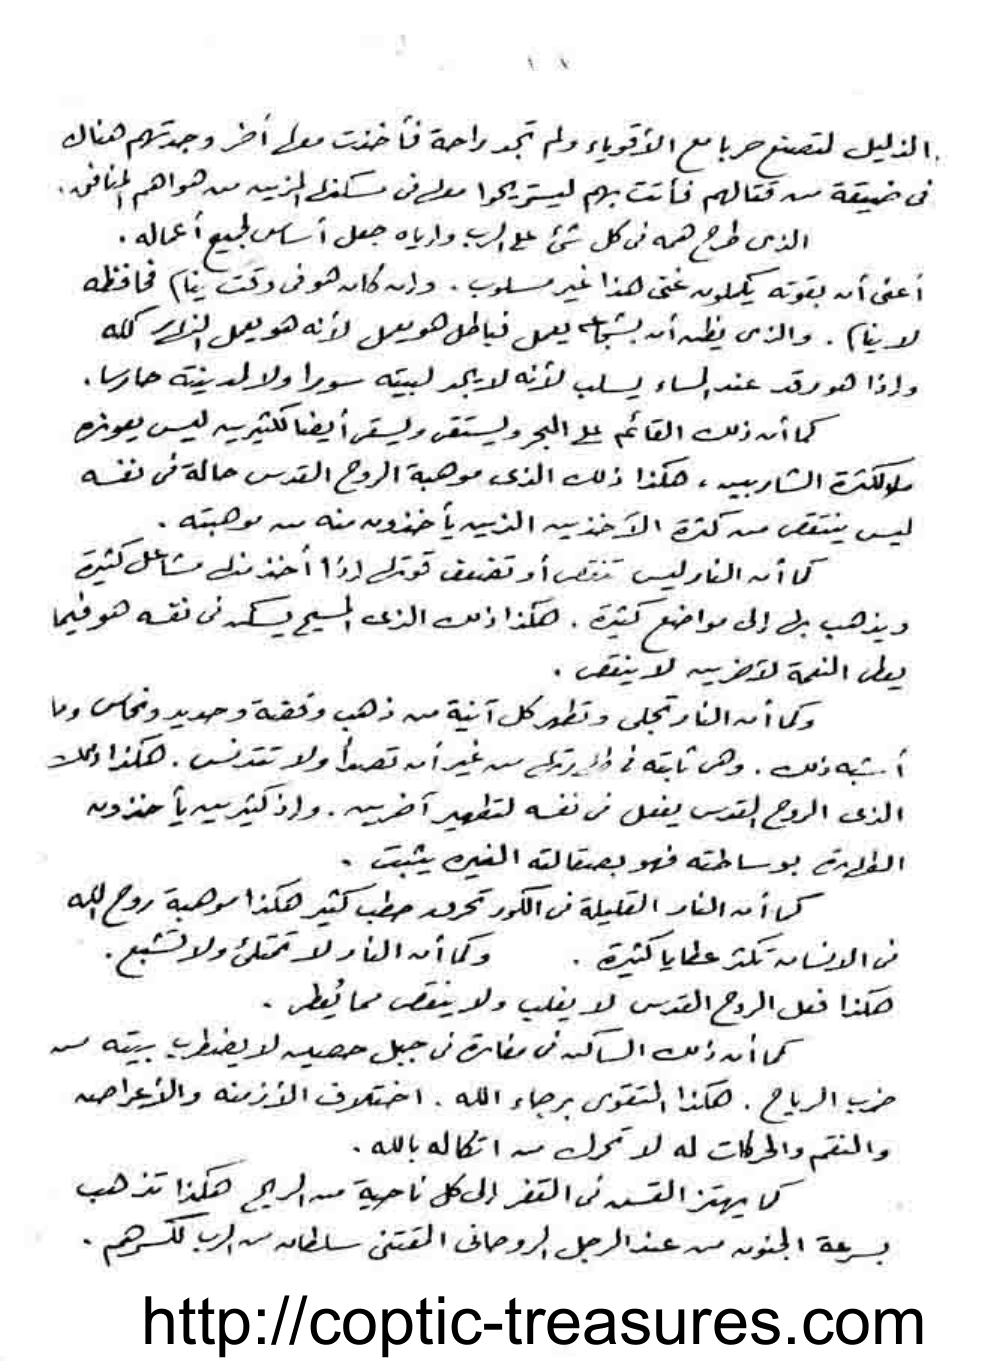 ١٨
الذليل لتصنع حربا مع الأقوياء ولم تجد راحة فأخذت معها أخر وجدتهم هناك
فى ضيقة من قتالهم فأتت بهم ليستريحوا معها فى مسكنها المزين من هواهم المنافق.
الذى طرح همه فى كل شئ على الرب واياه جعل أساس لجميع أعماله.
أعنى أن بقوته يكملون غنى هذا غير مسلوب. وان كان هو فى وقت ينام فحافظه
لا ينام. والذى يظن أن بشجاعته يعمل فباطل هو يعمل لأنه هو يعمل النهار كله
واذا هو رقد عند المساء يسلب لأنه لا يجد لبيته سورا ولا لمدينته حارسا.
كما أن ذلك القائم على البحر ويستقى ويسقى أيضا لكثيرين ليس يعوزه
ماء لكثرة الشاربين، هكذا ذلك الذى موهبة الروح القدس حالة فى نفسه
ليس ينتقص من كثرة الآخذين الذين يأخذون منه من موهبته.
كما أن النار ليس تنتقص أو تضعف قوتها إذا أخذ منها مشاعل كثيرة
ويذهب بها إلى مواضع كثيرة. هكذا ذلك الذى المسيح يسكن فى نفسه هو فيما
يعطى النعمة لآخرين لا ينقص.
وكما أن النار تجلى وتطهر كل آنية من ذهب وفضة وحديد ونحاس وما
أشبه ذلك. وهى ثابته فى طهارتها من غير أن تصدأ ولا تتدنس. هكذا ذلك
الذى الروح القدس يفعل فى نفسه لتطهير آخرين. واذ كثيرين يأخذون
الطهارة بوساطته فهو بصقالته الغيره يثبت.
كما أن النار القليلة فى الكور تحرق حطب كثير هكذا موهبة روح الله
فى الانسان تكثر عطايا كثيرة. وكما أن النار لا تمتلئ ولا تشبع.
هكذا فعل الروح القدس لا يغلب ولا ينقص مما يُعطى.
كما أن ذلك الساكن فى مغارة فى جبل حصين لا يضطرب بيته من
ضرب الرياح. هكذا المتقوى برجاء الله. اختلاف الأزمنه والأعراض
والنقم والحركات له لا تحرك من اتكاله بالله.
كما يهتز القش فى القفر إلى كل ناحية من الريح هكذا تذهب
بسرعة الجنون من عند الرجل الروحانى المقتنى سلطان من الرب لكسرهم.
http://coptic-treasures.com